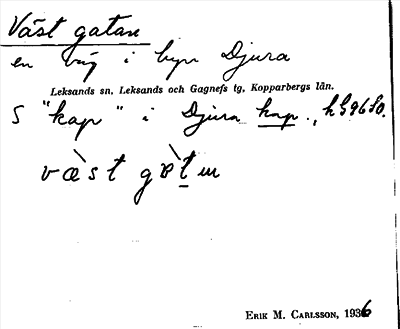 Väst gatan
en väg i byn Djura
Leksands sn, Leksands och Gagnefs tg, Kopparbergs län.
S "kap" i Djura kap.,
væ̀st gɐ̀t
ERIK M. CARLSSON, 1936